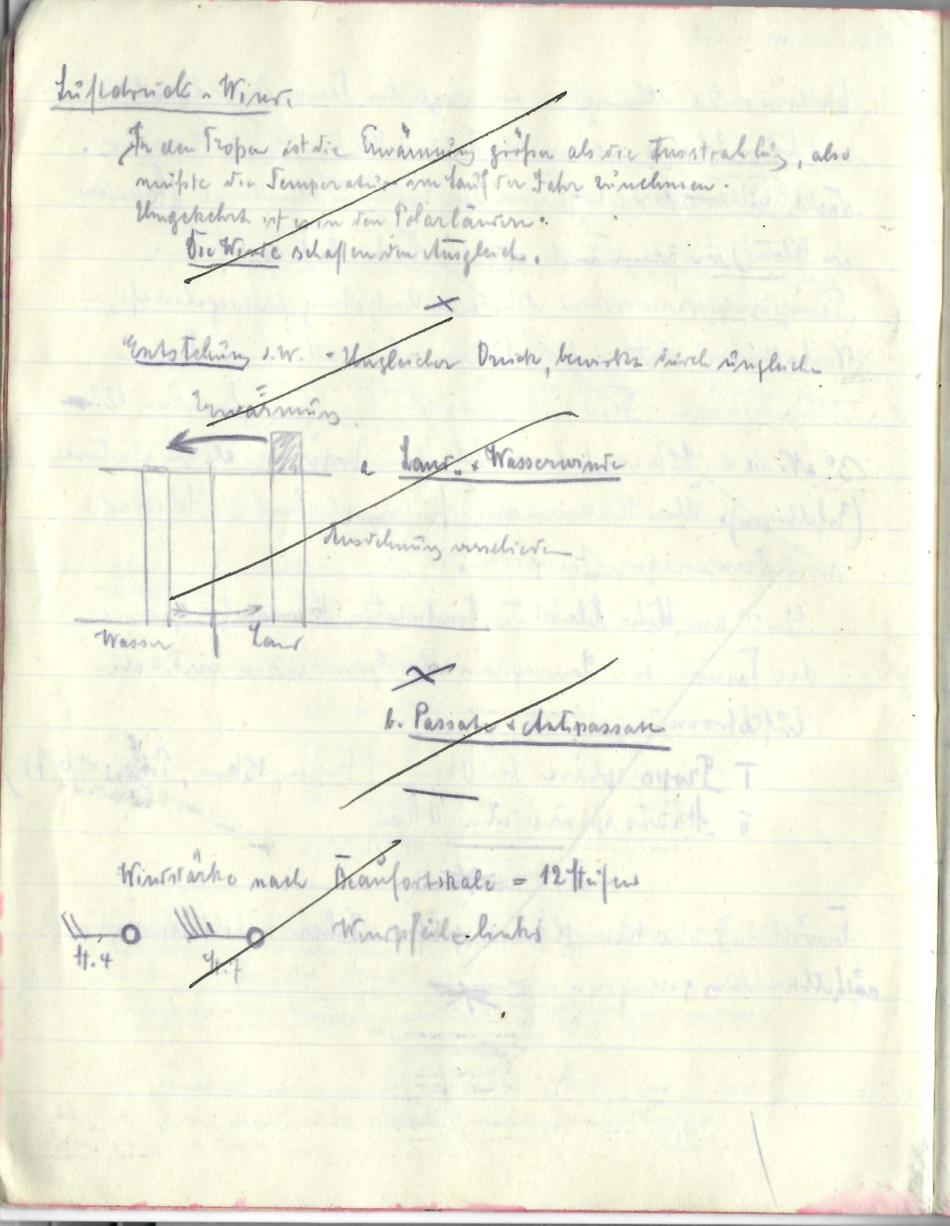 Luftdruck u. Wind.
In den Tropen ist die Erwärmung größer als die Ausstrahlung, also
müßte die Temperatur im Lauf der Jahre zunehmen.
Umgekehrt ist es in den Polarländern.
Die Winde schaffen den Ausgleich.
Entstehung d. W. - Ungleicher Druck, bewirkt durch ungleiche
Erwärmung
a Land- + Wasserwinde
Ausdehnung verschieden
Wasser Land
b. Passate + Antipassate
Windstärke nach Beaufortskale = 12 Stufen
Windpfeile links
St. 4 St. 7